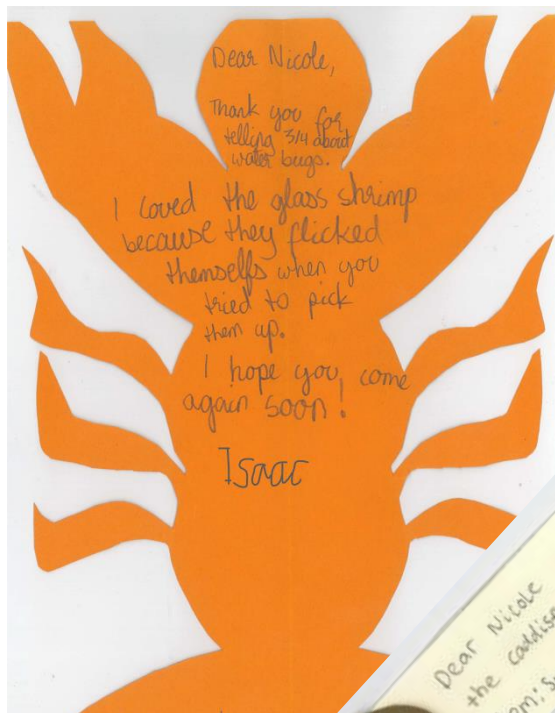 Dear Nicole,
Thank you for
telling 3/4 about
water bugs.
I loved the glass shrimp
because they flicked
themselfs when you
tried to pick
them up.
I hope you come
again soon!
Isaac
Dear Nicole
the